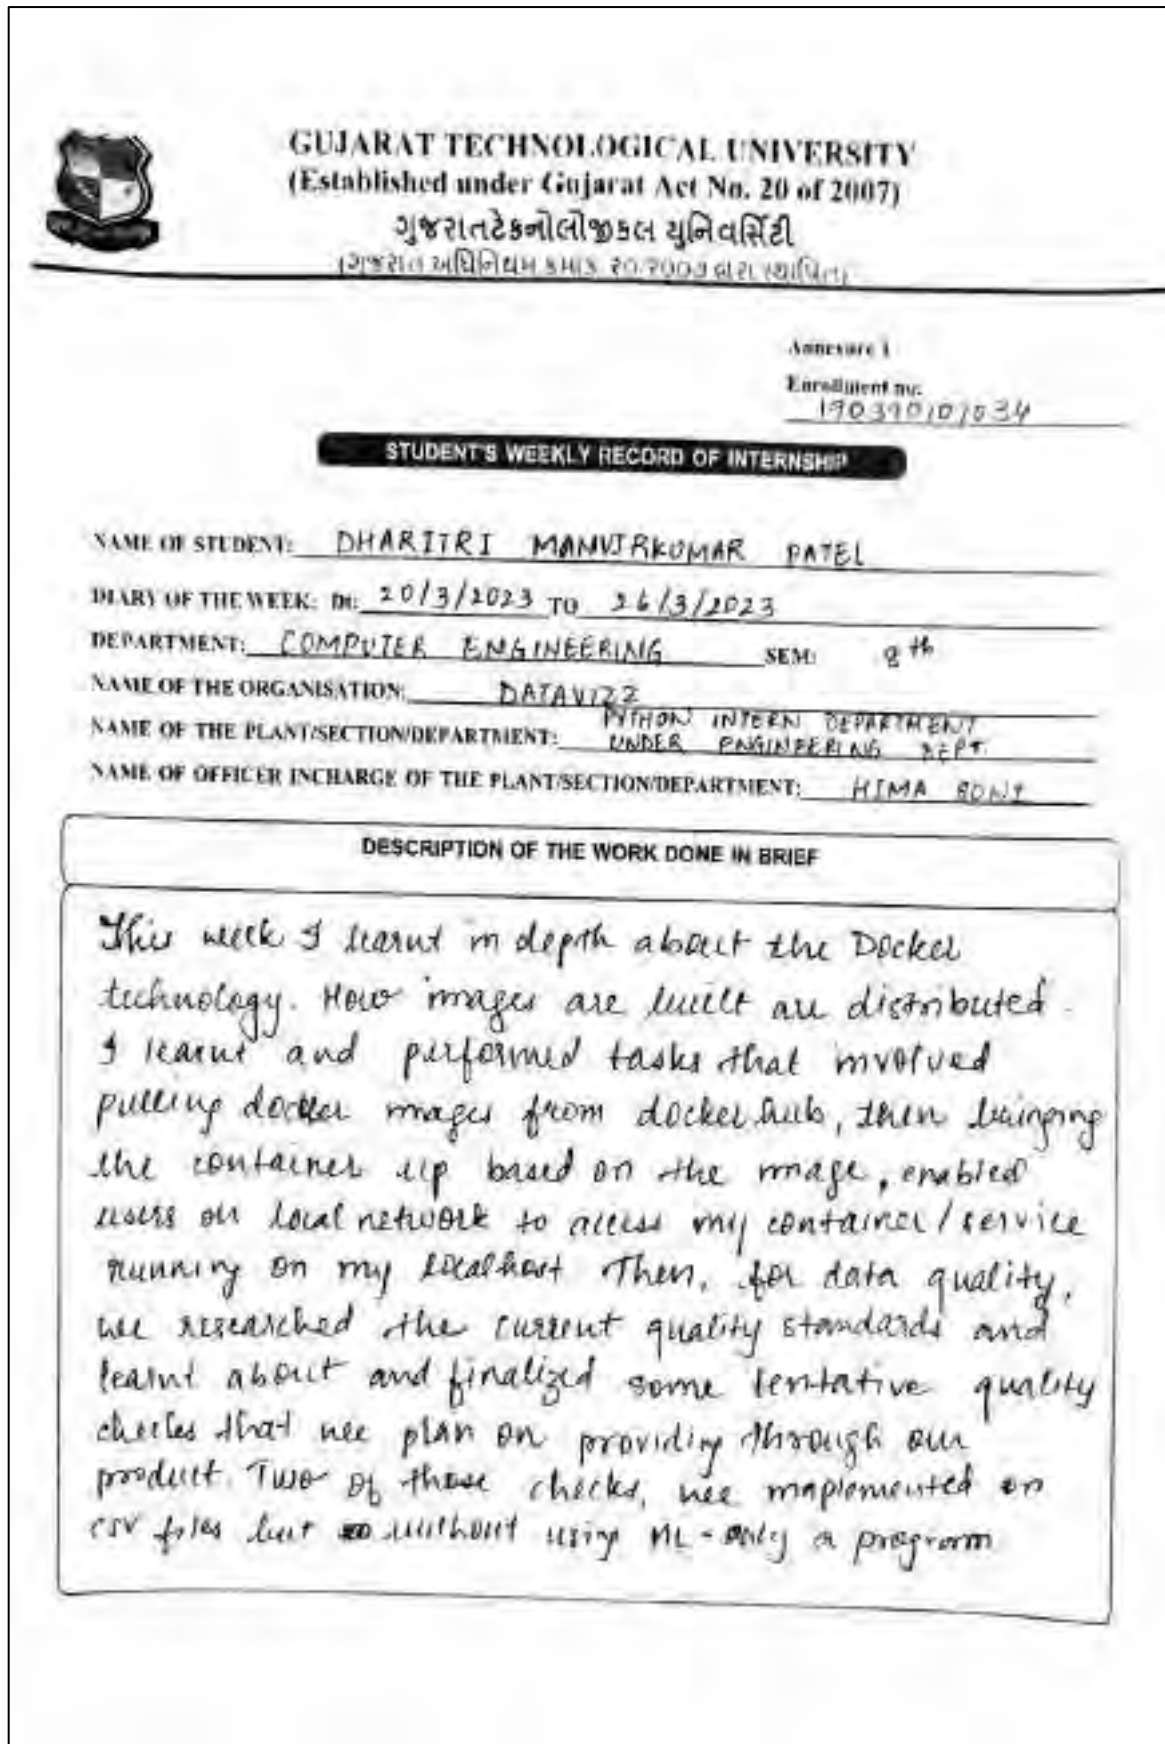 GUJARAT TECHNOLOGICAL UNIVERSITY
(Established under Gujarat Act No. 20 of 2007)
ગુજરાતટેકનોલોજીકલ યુનિવર્સિટી
(ગુજરાત અધિનિયમ ક્રમાંક ૨૦/૨૦૦૭ દ્વારા સ્થાપિત)
Annexure 1
Enrollment no.
190390107034
STUDENT'S WEEKLY RECORD OF INTERNSHIP
NAME OF STUDENT: DHARITRI MANVIRKUMAR PATEL
DIARY OF THE WEEK: Dt: 20/3/2023 TO 26/3/2023
DEPARTMENT: COMPUTER ENGINEERING SEM: 8th
NAME OF THE ORGANISATION: DATAVIZZ
PYTHON INTERN DEPARTMENT
NAME OF THE PLANT/SECTION/DEPARTMENT: UNDER ENGINEERING DEPT.
NAME OF OFFICER INCHARGE OF THE PLANT/SECTION/DEPARTMENT: HIMA SONI
DESCRIPTION OF THE WORK DONE IN BRIEF
This week I learnt in depth about the Docker
technology. How images are built are distributed.
I learnt and performed tasks that involved
pulling docker images from docker hub, then bringing
the container up based on the image, enabled
users on local network to access my container/service
running on my localhost Then, for data quality,
we researched the current quality standards and
learnt about and finalized some tentative quality
checks that we plan on providing through our
product. Two of those checks, we implemented on
csv files but without using ML - only a program